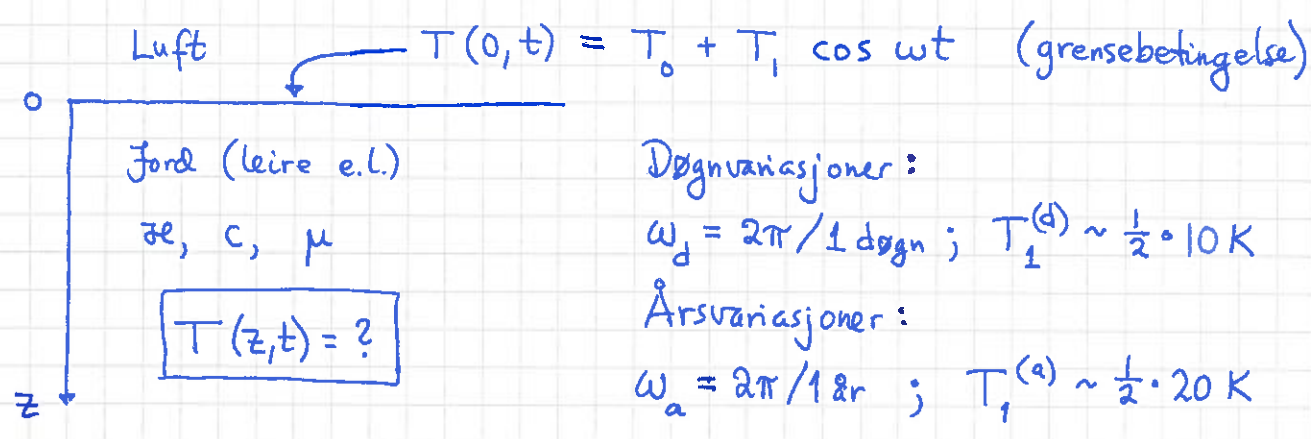 Luft
T(0,t) = T₀ + T₁ cos ωt (grensebetingelse)
0
Jord (leire e.l.)
ϰ, c, μ
T(z,t) = ?
z
Døgnvariasjoner:
ω_d = 2π/1 døgn ; T₁^(d) ~ ½ · 10 K
Årsvariasjoner:
ω_a = 2π/1 år ; T₁^(a) ~ ½ · 20 K